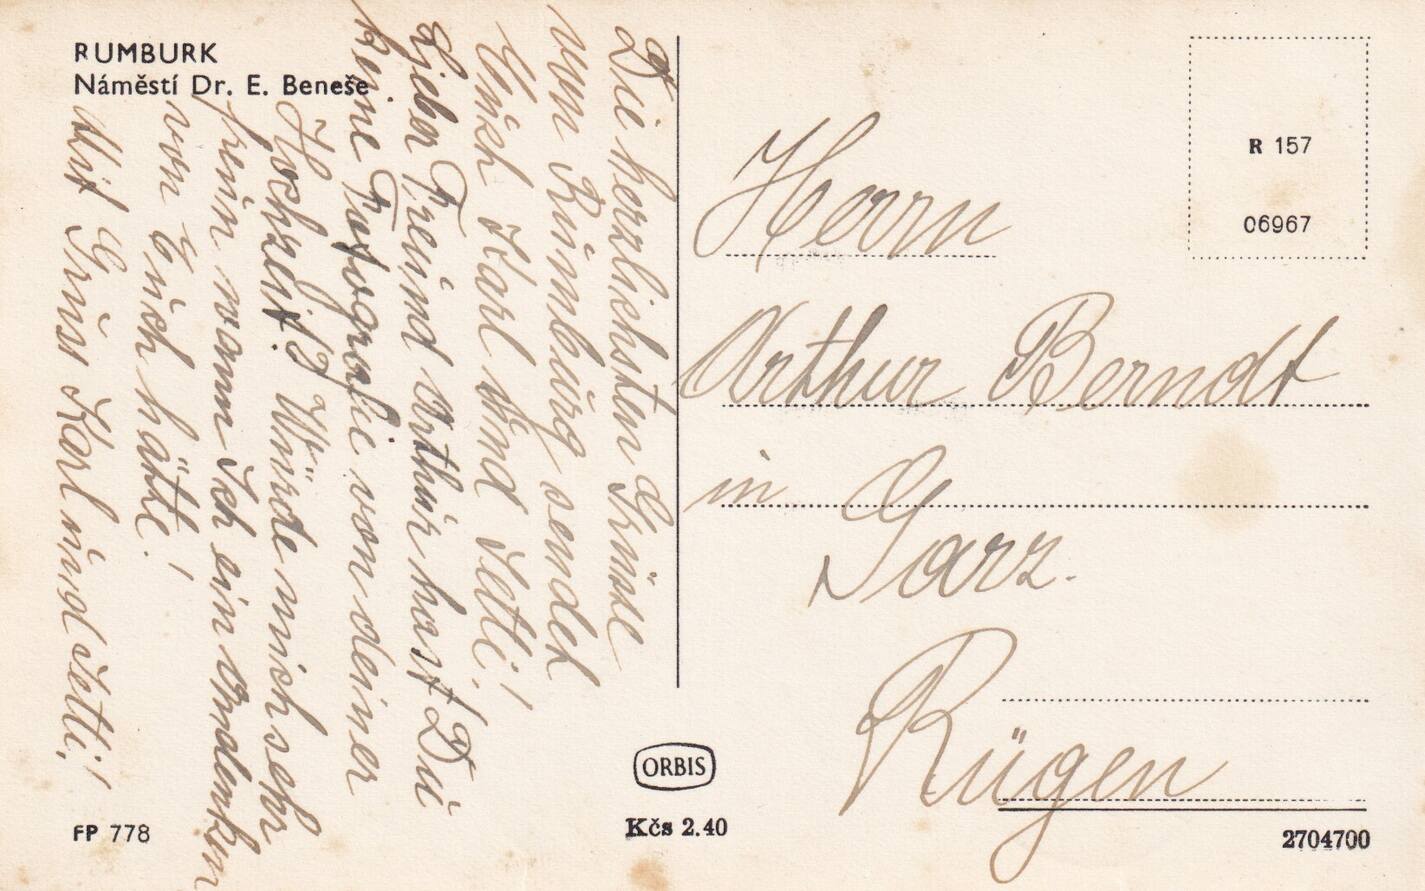 RUMBURK
Náměstí Dr. E. Beneše
Die herzlichsten Grüsse
vom Rümbürg sendet
Eüch Karl ünd Jetti!
Ljeber Freünd Arthür hast Dü
keine Fotografie von deiner
Hochzeit? Würde mich sehr
freün wann Ich ein Andenken
von Eüch hätte!
Mit Grüss Karl ünd Jetti!
R 157
06967
Herrn
Arthur Berndt
in Garz.
Rügen
ORBIS
Kčs 2.40
FP 778
2704700